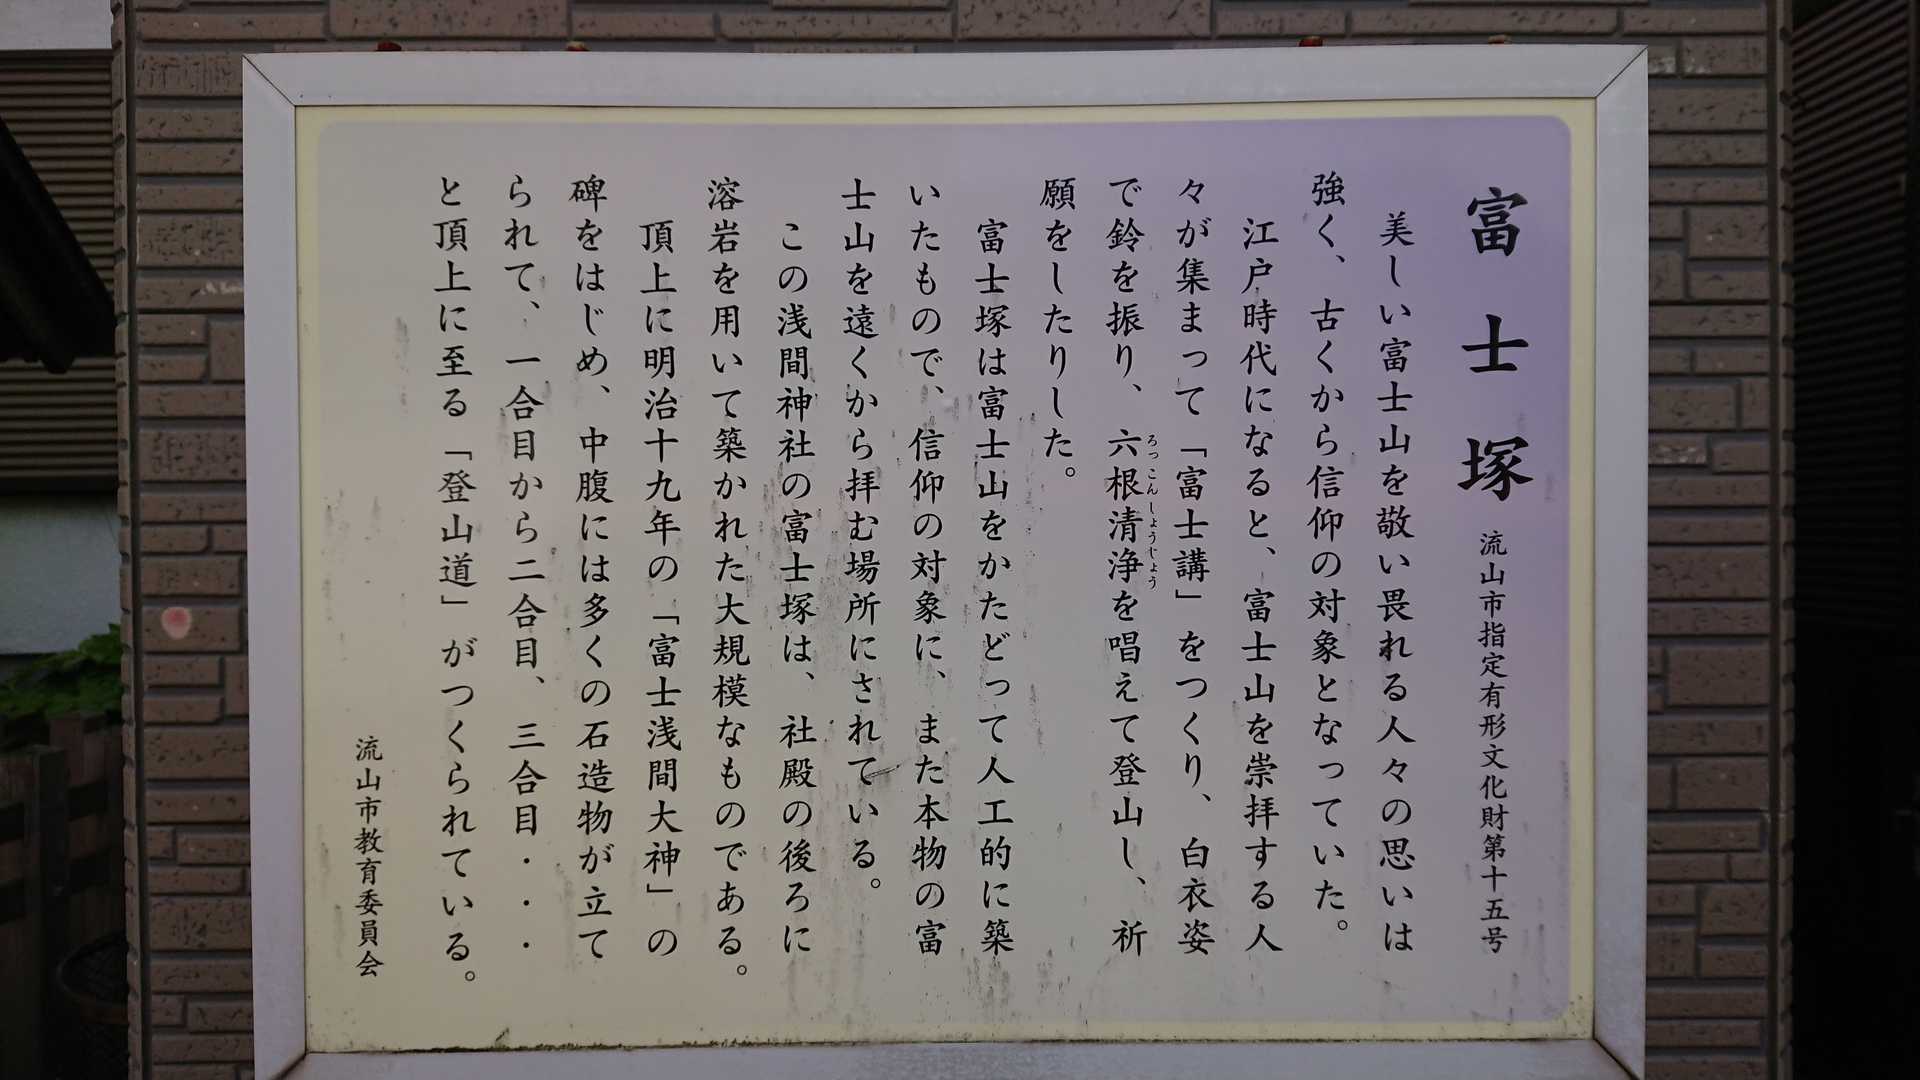 富士塚 流山市指定有形文化財第十五号
美しい富士山を敬い畏れる人々の思いは
強く、古くから信仰の対象となっていた。
江戸時代になると、富士山を崇拝する人
々が集まって「富士講」をつくり、白衣姿
で鈴を振り、六根清浄を唱えて登山し、祈
ろっこんしょうじょう
願をしたりした。
富士塚は富士山をかたどって人工的に築
いたもので、信仰の対象に、また本物の富
士山を遠くから拝む場所にされている。
この浅間神社の富士塚は、社殿の後ろに
溶岩を用いて築かれた大規模なものである。
頂上に明治十九年の「富士浅間大神」の
碑をはじめ、中腹には多くの石造物が立て
られて、一合目から二合目、三合目・・・
と頂上に至る「登山道」がつくられている。
流山市教育委員会